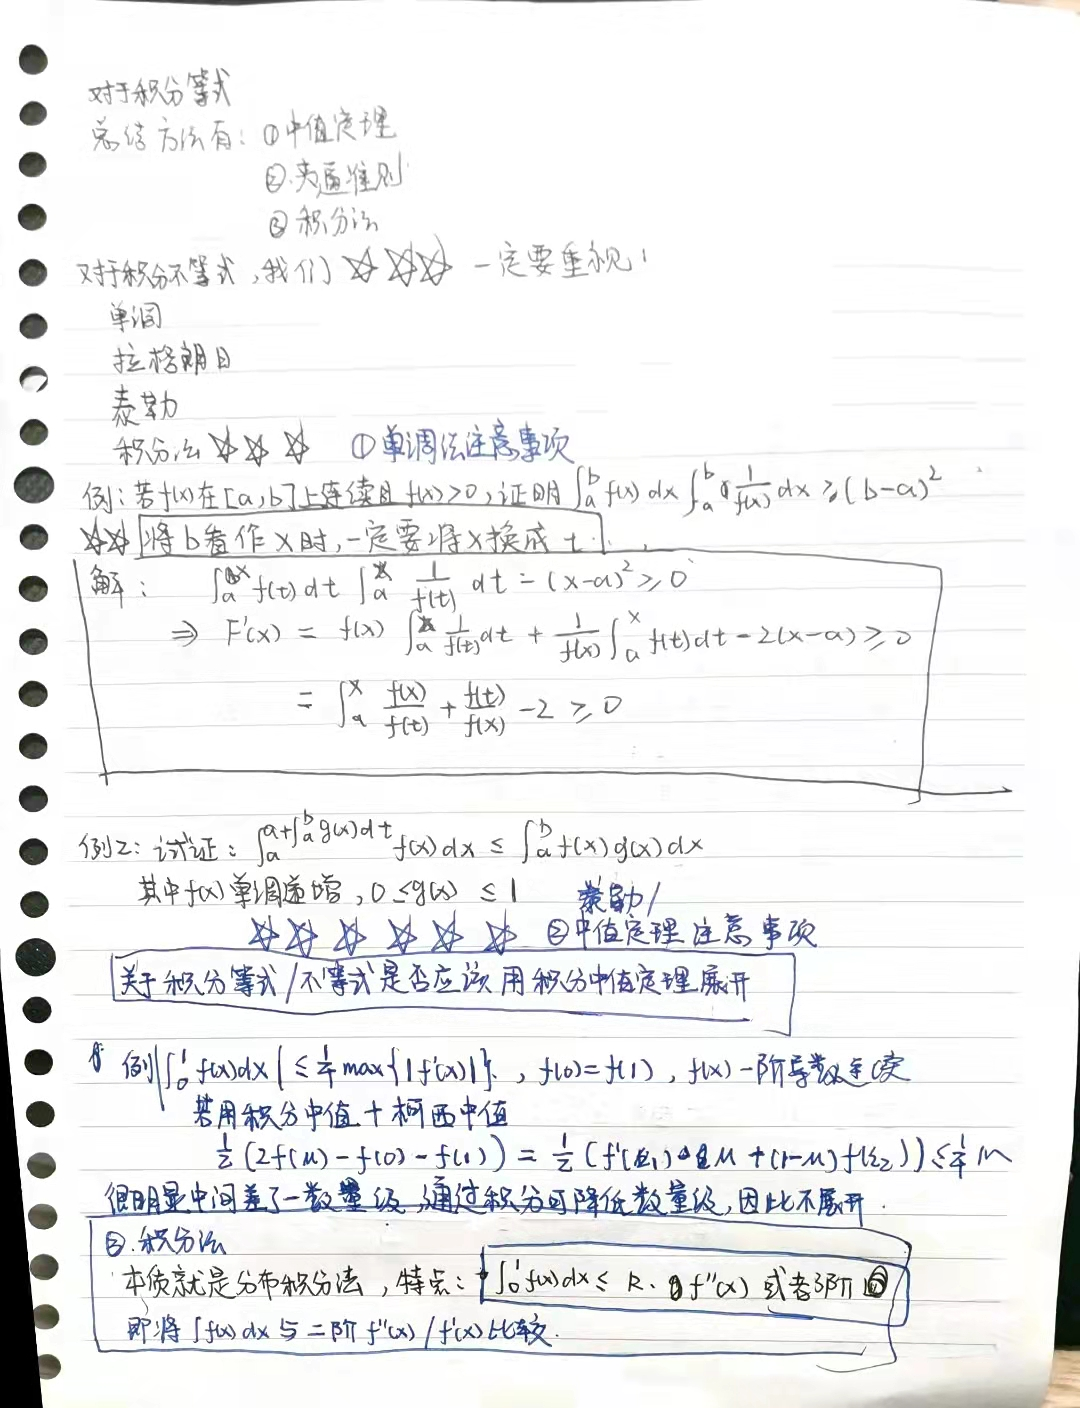 对于积分等式
总结方法有：①中值定理
②.夹逼准则
③积分法
对于积分不等式，我们☆☆☆一定要重视！
单调
拉格朗日
泰勒
积分法☆☆☆ ①单调法注意事项
例：若f(x)在[a,b]上连续且f(x)>0，证明∫_a^b f(x)dx∫_a^b 1/f(x) dx≥(b-a)²
☆☆将b看作x时，一定要将x换成t.
解：∫_a^x f(t)dt ∫_a^x 1/f(t) dt-(x-a)²≥0
⇒ F'(x) = f(x) ∫_a^x 1/f(t) dt + 1/f(x) ∫_a^x f(t)dt-2(x-a)≥0
= ∫_a^x f(x)/f(t) + f(t)/f(x) -2 ≥0
例2：试证：∫_a^{a+∫_a^b g(x)dt} f(x)dx ≤ ∫_a^b f(x)g(x)dx
其中f(x)单调递增，0≤g(x)≤1 泰勒/
☆☆☆☆☆☆ ②中值定理注意事项
关于积分等式/不等式是否应该用积分中值定理展开
例|∫_0^1 f(x)dx| ≤ 1/4 max{|f'(x)|}.，f(0)=f(1)，f(x)一阶导数连续
若用积分中值+柯西中值
1/2(2f(μ)-f(0)-f(1)) = 1/2(f'(ξ₁)μ+(1-μ)f(ξ₂))≤1/4 M
很明显中间差了一数量级，通过积分可降低数量级，因此不展开.
③.积分法
本质就是分布积分法，特点：∫_0^1 f(x)dx≤ k. f''(x) 或者3阶
即将∫f(x)dx与二阶f''(x)/f'(x)比较.